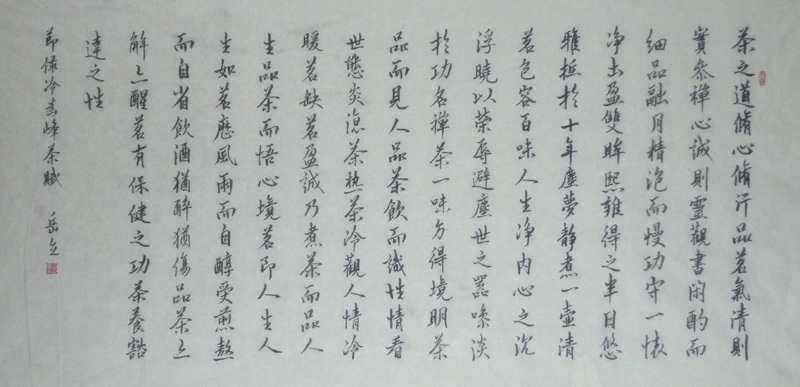 茶之道脩心脩行品茗氣清則
實叅禪心誠則靈觀書閑酌而
細品融月精泡而慢功守一怀
净出盈雙眸熙雅得之半日悠
雅拒於十年塵夢静煮一壺清
茗色容百味人生净内心之沉
浮曉以榮辱避塵世之嚣嗓淡
於功名禪茶一味方得境明茶
品而見人品茶飲而識性情看
世態炎涼茶热茶冷觀人情冷
暖茗缺茗盈誠乃煮茶而品人
生品茶而悟心境茗即人生人
生如茗歷風雨而自醇受煎熬
而自省飲酒猶醉猶傷品茶亦
解亦醒茗有保健之功茶養豁
達之性
節錄冷峰茶賦 岳